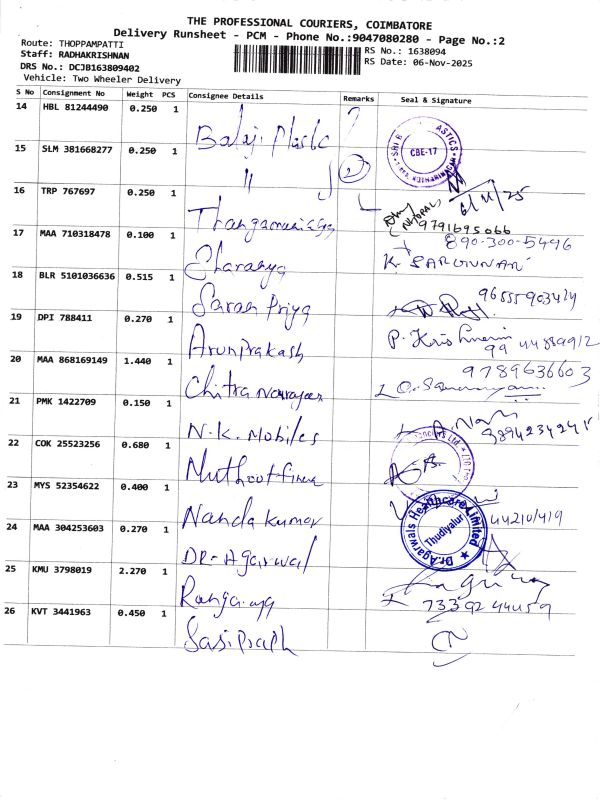 THE PROFESSIONAL COURIERS, COIMBATORE
Delivery Runsheet - PCM - Phone No.:9047080280 - Page No.:2
Route: THOPPAMPATTI
Staff: RADHAKRISHNAN
RS No.: 1638094
DRS No.: DCJB163809402
RS Date: 06-Nov-2025
Vehicle: Two Wheeler Delivery
S No Consignment No Weight PCS Consignee Details Remarks Seal & Signature
14 HBL 81244490 0.250 1 Balaji Plastic
CBE-17
15 SLM 381668277 0.250 1 "
6/11/25
16 TRP 767697 0.250 1
9791695066
17 MAA 710318478 0.100 1 Charanya
890-300-5496
K. SARGUNAN
18 BLR 5101036636 0.515 1 Saran Priya
19 DPI 788411 0.270 1 Arunprakash
20 MAA 868169149 1.440 1 Chitra Narayanan
9789636603
21 PMK 1422709 0.150 1 N.K. Mobiles
22 COK 25523256 0.680 1 Muthoot
23 MYS 52354622 0.400 1 Nanda Kumar
24 MAA 304253603 0.270 1 DR-Agarwal
Dr.Agarwals Healthcare Limited
Thudiyalur
25 KMU 3798019 2.270 1
26 KVT 3441963 0.450 1